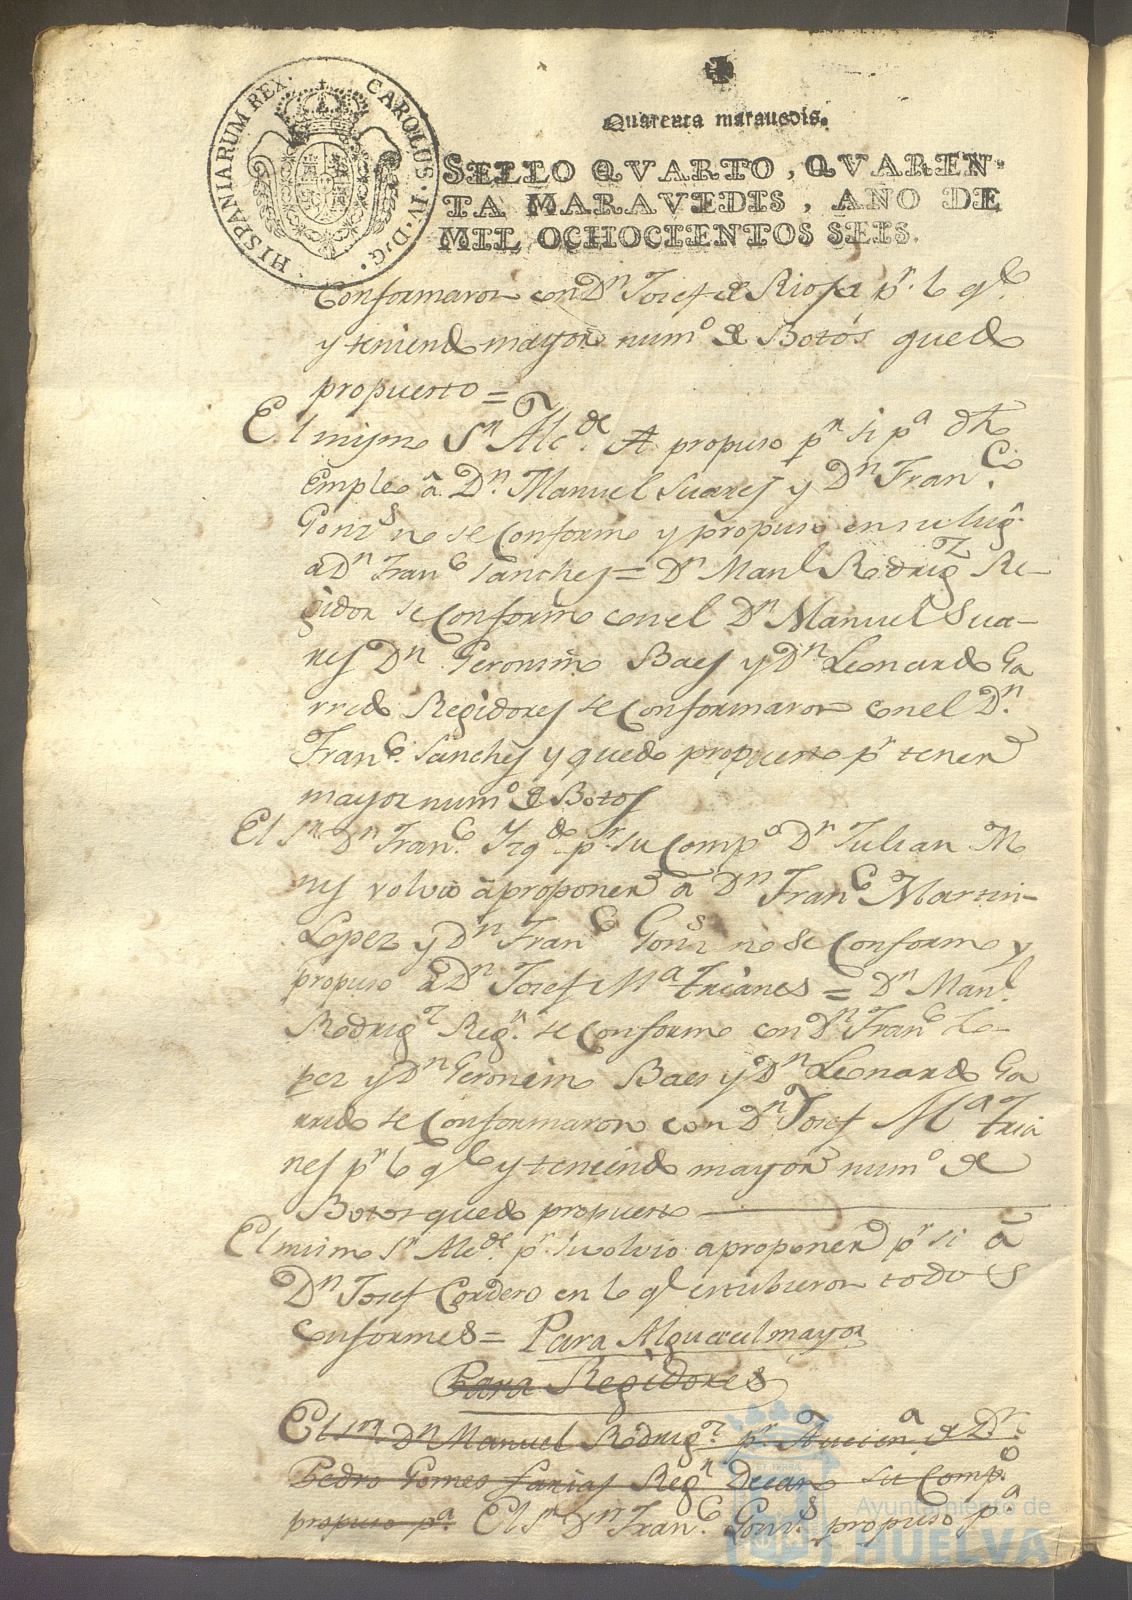 HISPANIARUM REX. CAROLUS. IV. D. G.
Quarenta marauedis.
SELLO QVARTO, QVAREN-
TA MARAVEDIS, AÑO DE
MIL OCHOCIENTOS SEIS.
Conformaron con Dn Josef de Rioja pr. lo ql.
y teniendo mayor numo de Botos quedo
propuesto =
El mismo Sr Alcde. propuso pr si pa dho
Empleo â Dn. Manuel Suares y Dn Franco.
Gonzs no se Conformo y propuso en su lugr
a Dn Franco Sanches = Dn Manl Rodrigz Re-
gidor se Conformo con el Dn Manuel Sua-
res Dn Geronimo Baes y Dn Leonardo Ga
rrido Regidores se Conformaron con el Dn.
Franco. Sanches y quedo propuesto pr tener
mayor numo de Botos
El Sr Dn Franco. Izqdo pr su Compo Dn Julian M
nes volvio â proponer â Dn Franco Martin
Lopez y Dn Franco Gonsz no se Conformo y
propuso â Dn Josef Ma Trianes = Dn Manl.
Rodrigz Regr. se Conformo con Dn Franco Lo-
pez y Dn Geronimo Baes y Dn Leonardo Ga
rrido se Conformaron con Dn Josef Ma Tria
nes pr lo ql y teniendo mayor numo de
Botos quedo propuesto
El mismo Sr Alcde. pr su volvio a proponer pr si â
Dn Josef Cordero en lo ql estubieron todos
Conformes = Para Alguacil mayor
Para Regidores
El Sor Dn Manuel Rodrigz pr Auciena de Dn
Pedro Gomes Farias Regr Decano su Compo
propuso pa. El Sr Dn Franco. Gonzs propuso pa
Ayuntamiento de
HUELVA